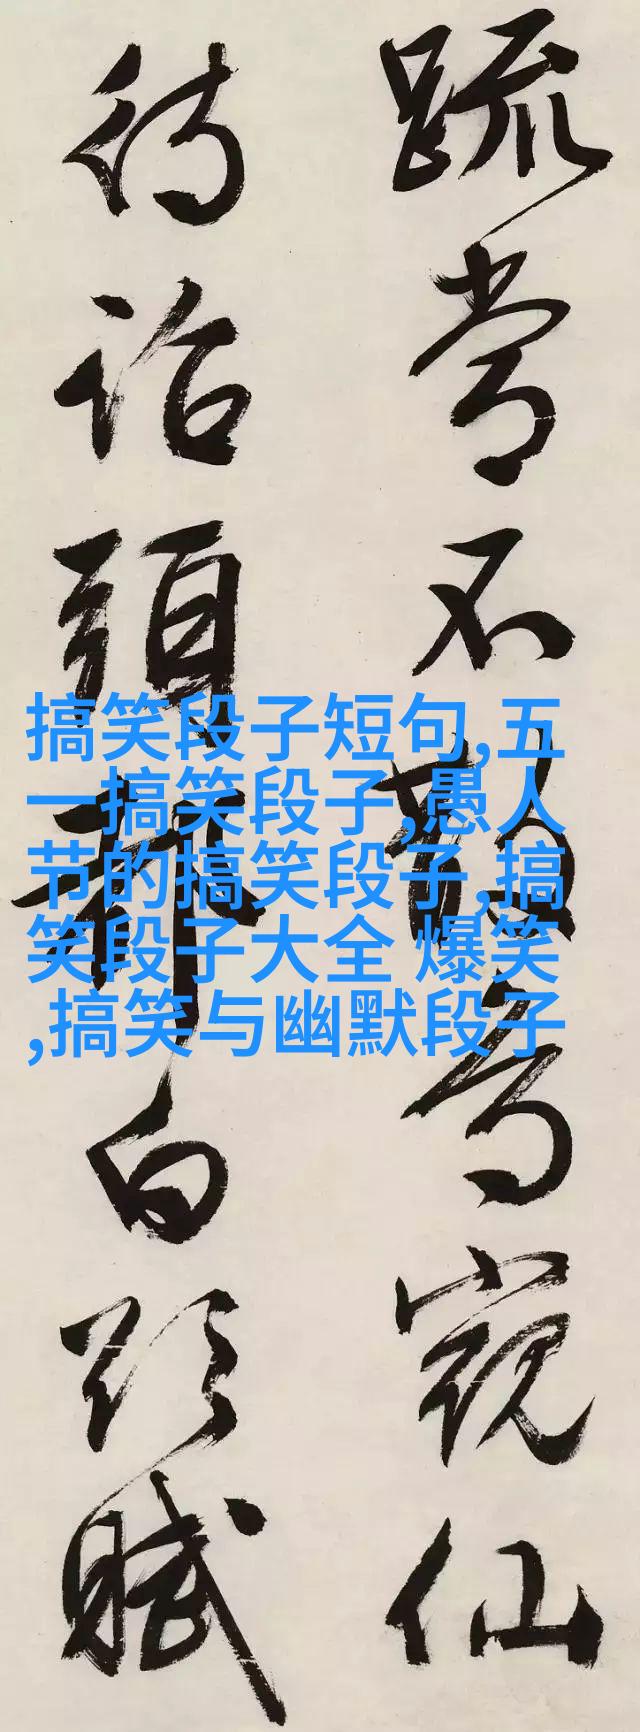 疏常不窺仙
待詔白賦
搞笑段子短句,五
一搞笑段子,愚人
节的搞笑段子,搞
笑段子大全 爆笑
,搞笑与幽默段子